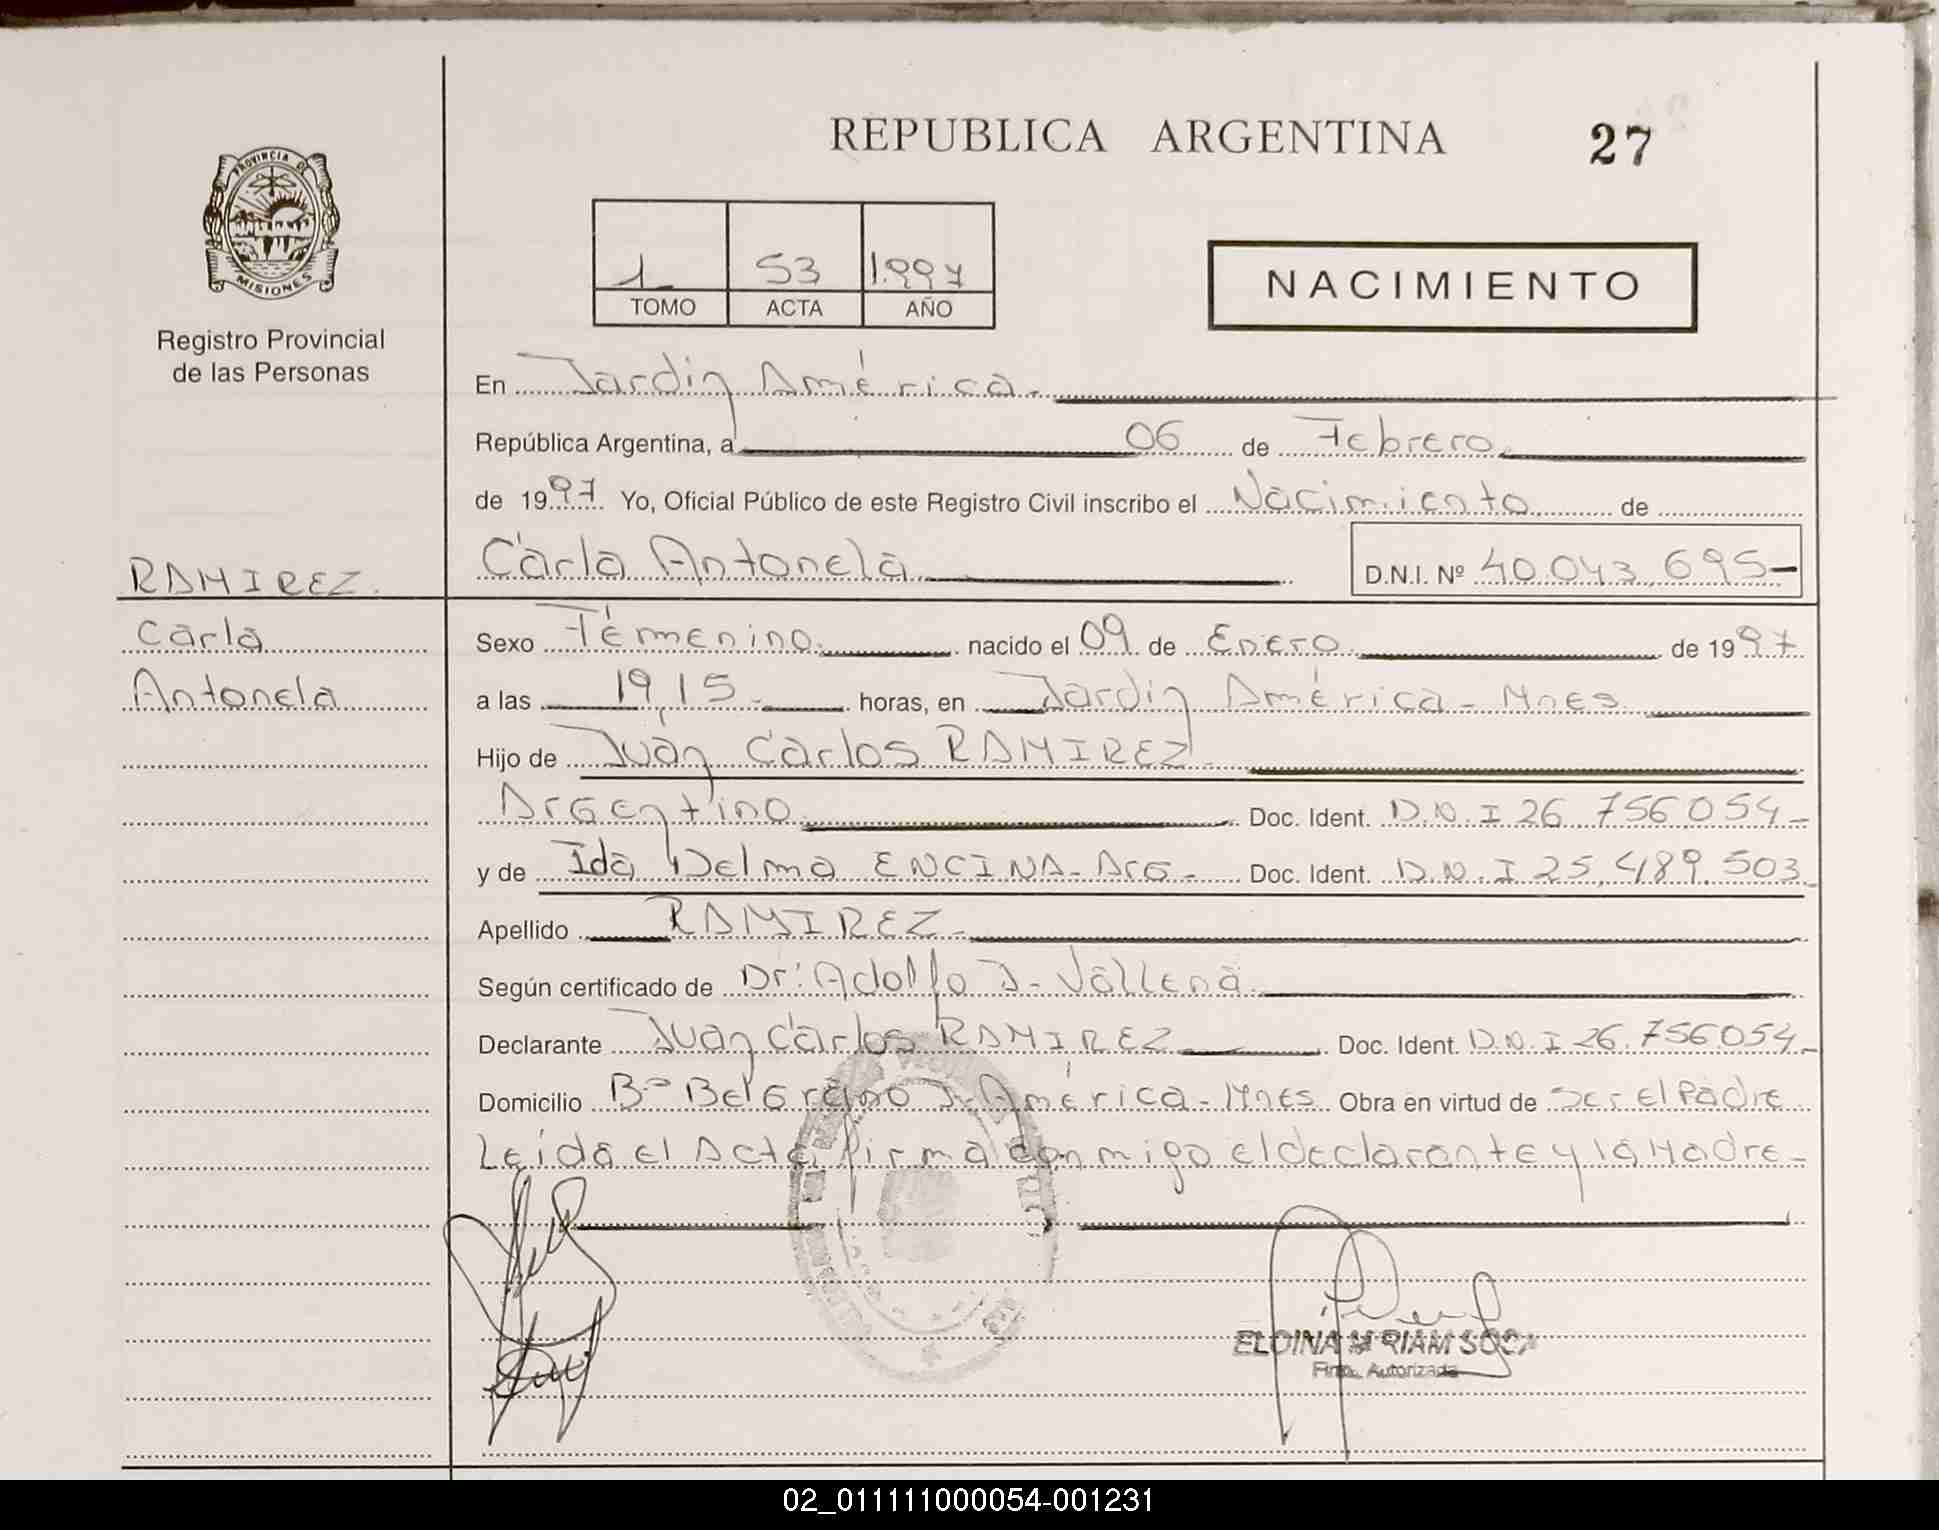 REPUBLICA ARGENTINA
27
PROVINCIA DE
MISIONES
Registro Provincial
de las Personas
1 53 1.997
TOMO ACTA AÑO
NACIMIENTO
En Jardín América.
República Argentina, a 06 de Febrero
de 1997 Yo, Oficial Público de este Registro Civil inscribo el Nacimiento de
Carla Antonela D.N.I. Nº 40.043.695-
RAMIREZ.
Carla
Antonela
Sexo Femenino nacido el 09 de Enero de 1997
a las 19,15 horas, en Jardín América - Mnes
Hijo de Juan Carlos RAMIREZ
Argentino Doc. Ident. D.N.I 26.756.054-
y de Ida Delma ENCINA - Arg - Doc. Ident. D.N.I 25.489.503
Apellido RAMIREZ
Según certificado de Dr: Adolfo J. Vallena
Declarante Juan Carlos RAMIREZ Doc. Ident. D.N.I 26.756.054-
Domicilio Bº Belgrano J. América - Mnes Obra en virtud de ser el Padre
Leída el Acta, firma conmigo el declarante y la Madre-
ELCINA MIRIAM SOSA
Firma Autorizada
02_011111000054-001231